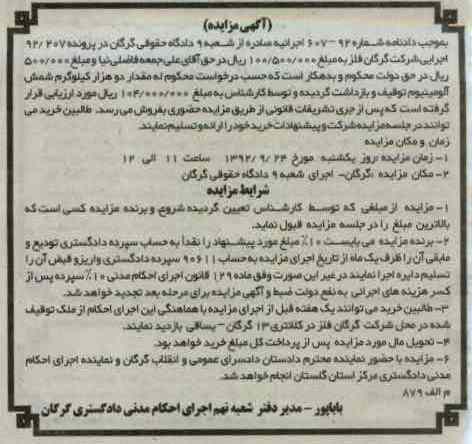 (آگهی مزایده)
بموجب دادنامه شماره ۹۲-۶۰۷ اجرائیه صادره از شعبه ۹ دادگاه حقوقی گرگان در پرونده ۹۲/۲۰۷
اجرایی شرکت گرگان فلز به مبلغ ۱۰۰/۵۰۰/۰۰۰ ریال در حق آقای علی جمعه فاضلی نیا و مبلغ ۵۰۰/۰۰۰
ریال در حق دولت محکوم و بدهکار است که حسب درخواست محکوم له مقدار دو هزار کیلوگرم شمش
آلومینیوم توقیف و بازداشت گردیده و توسط کارشناس به مبلغ ۱۰۴/۰۰۰/۰۰۰ ریال مورد ارزیابی قرار
گرفته است که پس از جری تشریفات قانونی از طریق مزایده حضوری بفروش می رسد. طالبین خرید می
توانند در جلسه مزایده شرکت و پیشنهادات خرید خود را ارائه و تسلیم نمایند.
زمان و مکان مزایده
۱- زمان مزایده :روز یکشنبه مورخ ۱۳۹۲/۹/۲۴ ساعت ۱۱ الی ۱۲
۲- مکان مزایده :گرگان- اجرای شعبه ۹ دادگاه حقوقی گرگان
شرایط مزایده
۱- مزایده از مبلغی که توسط کارشناس تعیین گردیده شروع و برنده مزایده کسی است که
بالاترین مبلغ را در جلسه مزایده قبول نماید.
۲- برنده مزایده می بایست ۱۰٪ مبلغ مورد پیشنهاد را نقداً به حساب سپرده دادگستری تودیع و
مابقی آن را ظرف یک ماه از تاریخ اجرای مزایده به حساب ۹۰۶۱۱ سپرده دادگستری واریز و قبض آن را
تسلیم دایره اجرا نمایند در غیر این صورت وفق ماده ۱۲۹ قانون اجرای احکام مدنی ۱۰٪ سپرده پس از
کسر هزینه های اجرائی به نفع دولت ضبط و آگهی مزایده برای مرحله بعد تجدید خواهد شد.
۳- طالبین خرید می توانند یک هفته قبل از اجرای مزایده با هماهنگی این اجرای احکام از ملک توقیف
شده در محل شرکت گرگان فلز در کلانتری ۱۳ گرگان - یساقی بازدید نمایند.
۴- تحویل مال مورد مزایده پس از پرداخت کل مبلغ خرید خواهد بود.
۶- مزایده با حضور نماینده محترم دادستان دادسرای عمومی و انقلاب گرگان و نماینده اجرای احکام
مدنی دادگستری مرکز استان گلستان انجام خواهد شد.
م الف ۸۷۹
باباپور - مدیر دفتر شعبه نهم اجرای احکام مدنی دادگستری گرگان